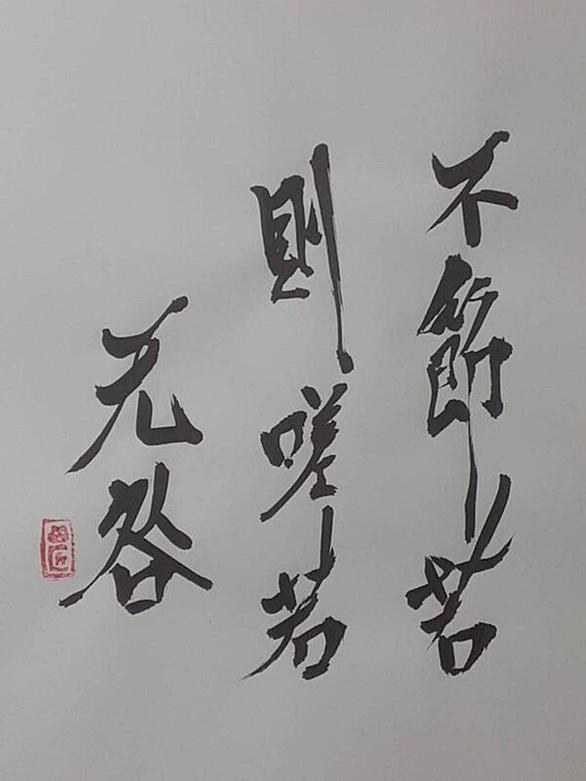 不節若
則嗟若
无咎